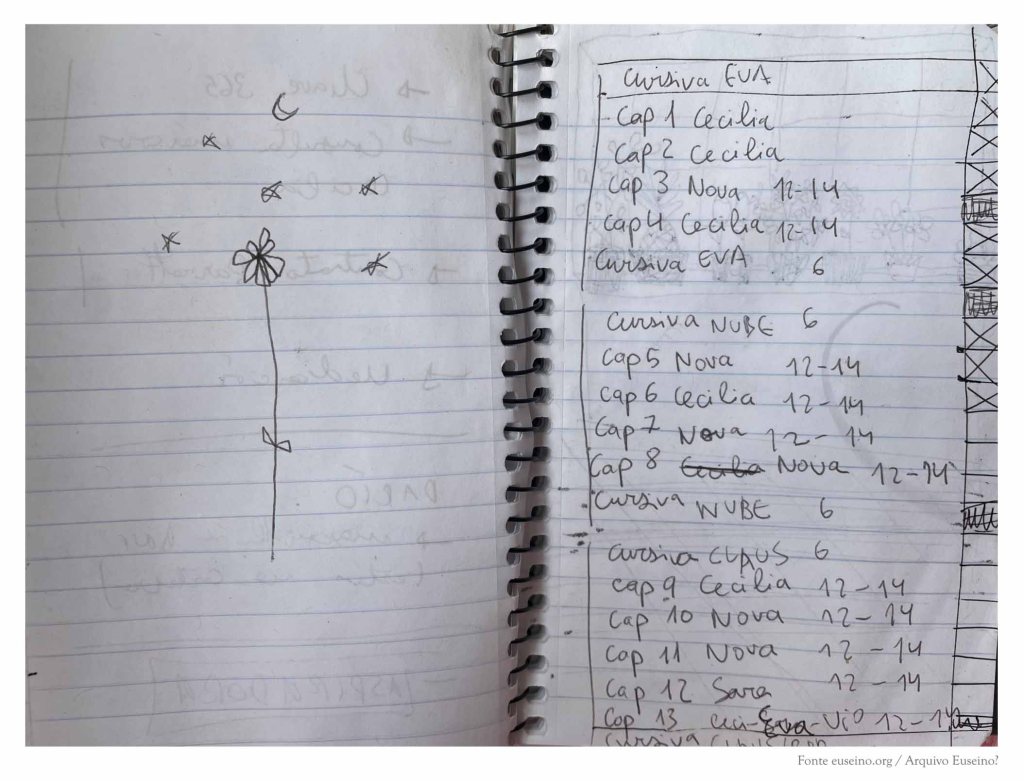 Cursiva EVA
Cap 1 Cecilia
Cap 2 Cecilia
Cap 3 Nova 12-14
Cap 4 Cecilia 12-14
Cursiva EVA 6
Cursiva NUBE 6
Cap 5 Nova 12-14
Cap 6 Cecilia 12-14
Cap 7 Nova 12-14
Cap 8 Cecilia Nova 12-14
Cursiva NUBE 6
Cursiva 6
Cap 9 Cecilia 12-14
Cap 10 Nova 12-14
Cap 11 Nova 12-14
Cap 12 Sara 12-14
Cap 13 Ceci- -Vio 12-14
Cursiva
Fonte euseino.org / Arquivo Euseino?